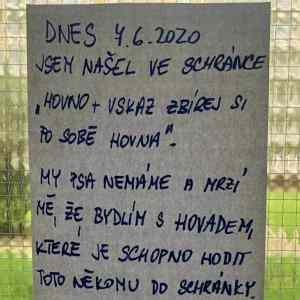 DNES 4.6.2020
JSEM NAŠEL VE SCHRÁNCE
„HOVNO + VSKAZ ZBÍREJ SI
PO SOBĚ HOVNA“.
MY PSA NEMÁME A MRZÍ
MĚ, ŽE BYDLÍM S HOVADEM,
KTERÉ JE SCHOPNO HODIT
TOTO NĚKOMU DO SCHRÁNKY.